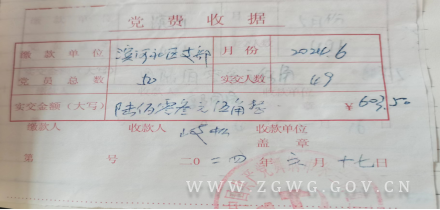 党费收据
缴款单位 滨河社区支部 月份 2024.6
党员总数 50 实交人数 49
实交金额(大写) 陆佰零叁元伍角整 ¥603.50
缴款人 收款人 收款单位
盖章
第 号 二0二四年六月十七日
WWW.ZGWG.GOV.CN